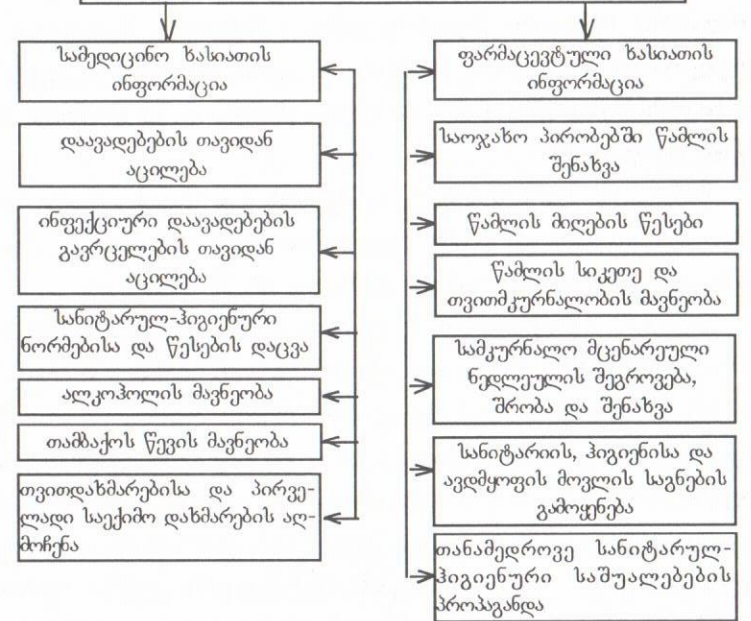 სამედიცინო ხასიათის
ინფორმაცია
დაავადებების თავიდან
აცილება
ინფექციური დაავადებების
გავრცელების თავიდან
აცილება
სანიტარულ-ჰიგიენური
ნორმებისა და წესების დაცვა
ალკოჰოლის მავნეობა
თამბაქოს წევის მავნეობა
თვითდახმარებისა და პირვე-
ლადი საექიმო დახმარების აღ-
მოჩენა
ფარმაცევტული ხასიათის
ინფორმაცია
საოჯახო პირობებში წამლის
შენახვა
წამლის მიღების წესები
წამლის სიკეთე და
თვითმკურნალობის მავნეობა
სამკურნალო მცენარეული
ნედლეულის შეგროვება,
შრობა და შენახვა
სანიტარიის, ჰიგიენისა და
ავდმყოფის მოვლის საგნების
გამოყენება
თანამედროვე სანიტარულ-
ჰიგიენური საშუალებების
პროპაგანდა